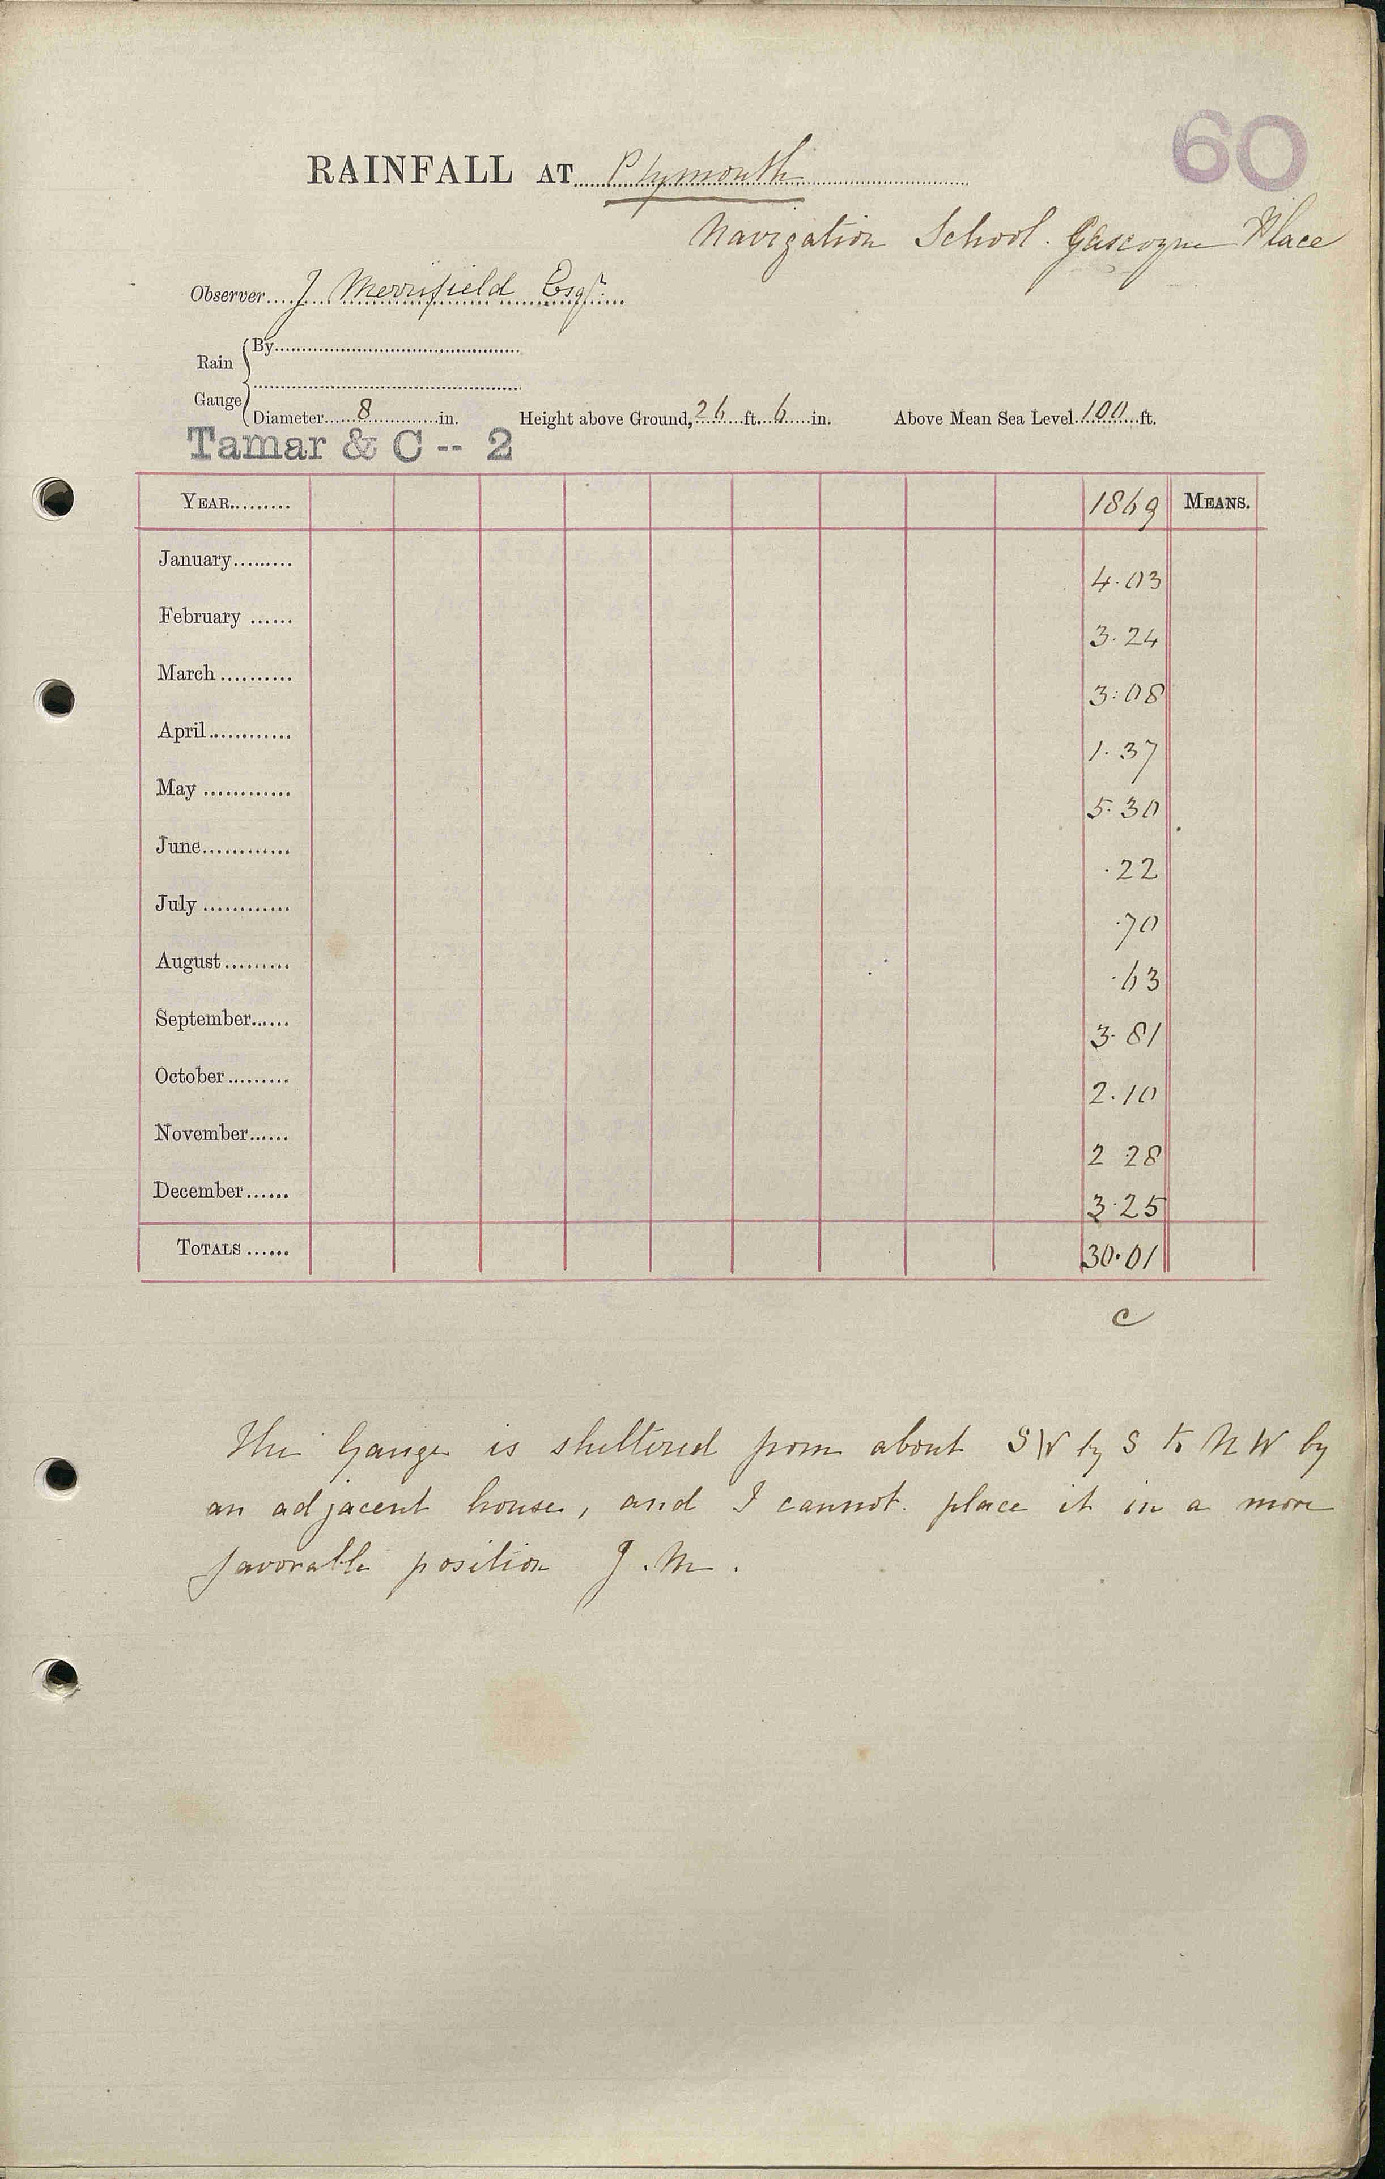 60
RAINFALL AT Plymouth
Navigation School. Gascoyne Place
Observer J Merrifield Esqr.
Rain Gauge
By
Diameter 8 in. Height above Ground, 26 ft. 6 in. Above Mean Sea Level 100 ft.
Tamar & C -- 2
YEAR 1869 MEANS.
January 4.03
February 3.24
March 3.08
April 1.37
May 5.30
June .22
July .70
August .63
September 3.81
October 2.10
November 2 28
December 3.25
TOTALS 30.01
c
The Gauge is sheltered from about SW by S to NW by
an adjacent house, and I cannot place it in a more
favorable position J.M.